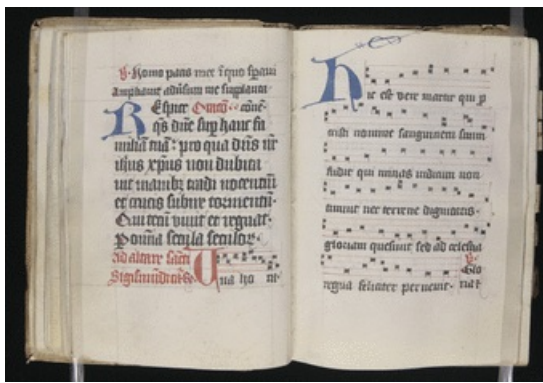 V. Homo pacis mee ī quo sp̄aui
ampliauit adūsum me supplanta
REspice Oracō. dn̄e
qs dn̄e sup hanc fa
miliā tuā: pro qua dn̄s nr̄
ihus xp̄us non dubita
uit manibȝ tradi nocentiū
et crucis subire tormentū.
Qui tecū viuit et regnat.
Per om̄ia secula seculoꝝ.
ad altare sancti
Sigismundi Una ho ni
Hic est vere martir qui p
cristi nomine sanguinem suum
fudit qui minas iudicum non
timuit nec terrene dignitatis
gloriam quesiuit sed ad celestia
V. Glo
regna feliciter peruenit. ria